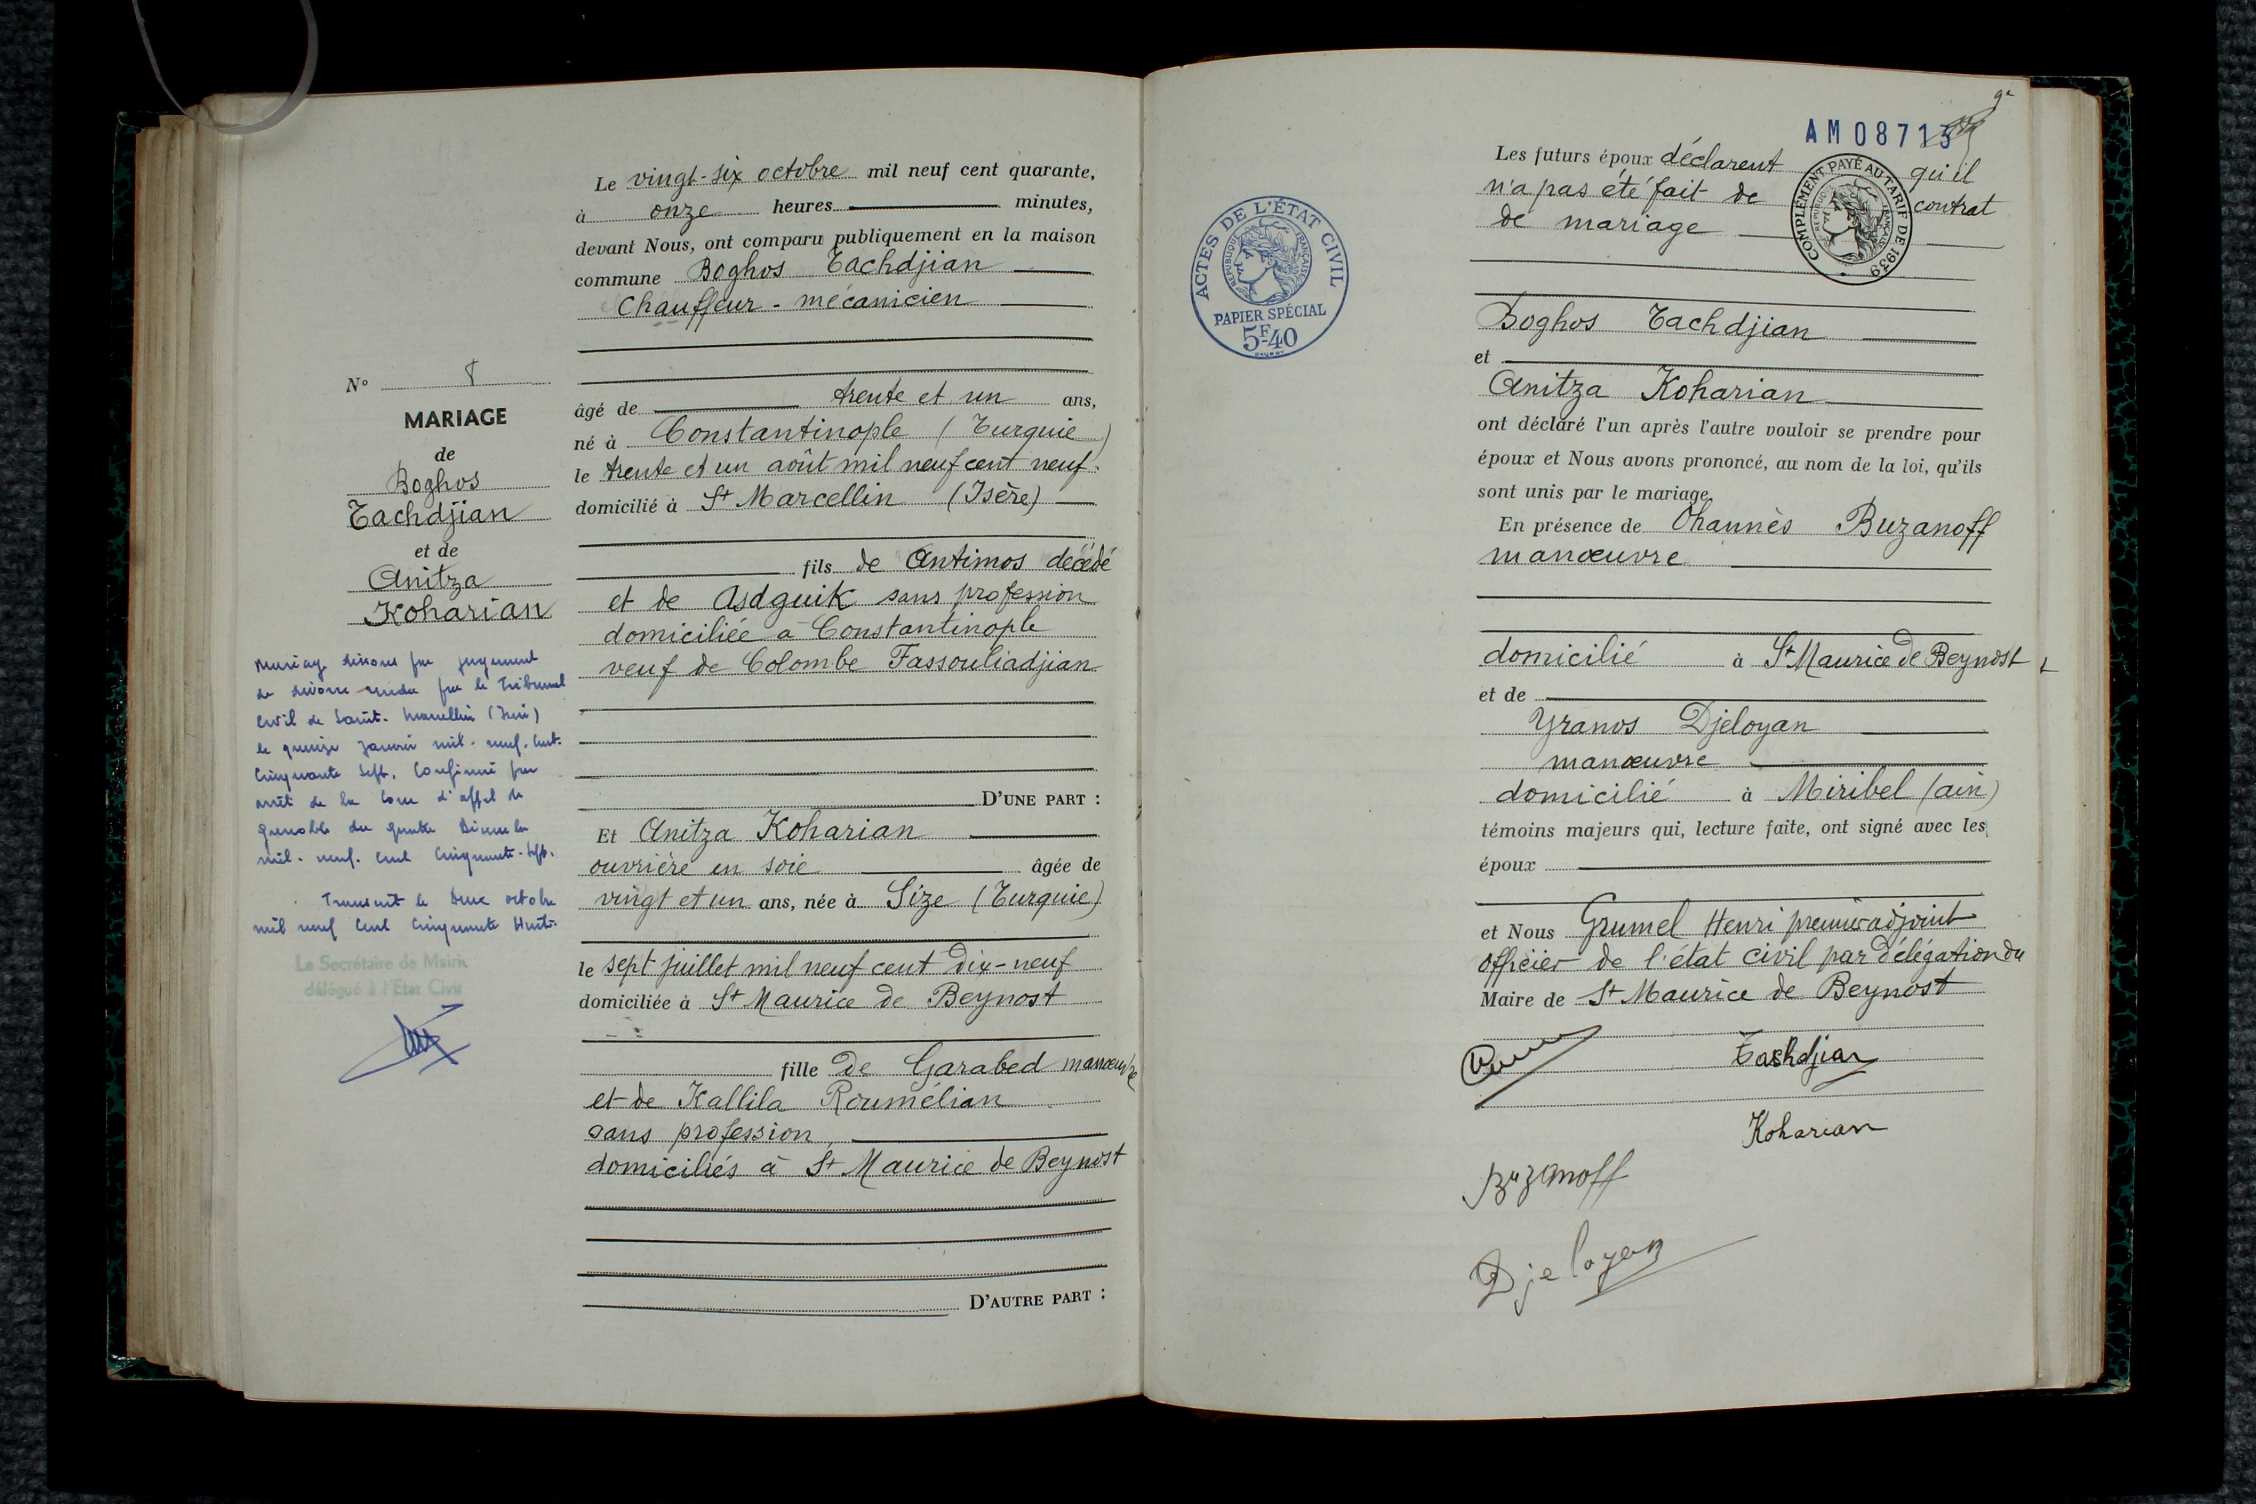 Le vingt-six octobre mil neuf cent quarante,
à onze heures minutes,
devant Nous, ont comparu publiquement en la maison
commune Boghos Tachdjian
Chauffeur - mécanicien
âgé de trente et un ans,
né à Constantinople (Turquie)
le trente et un août mil neuf cent neuf.
domicilié à St Marcellin (Isère)
fils de Antimos décédé
et de Asdguik sans profession
domiciliée à Constantinople
veuf de Colombe Fassouliadjian
D'UNE PART :
Et Anitza Koharian
ouvrière en soie âgée de
vingt et un ans, née à Size (Turquie)
le sept juillet mil neuf cent dix-neuf
domiciliée à St Maurice de Beynost
fille de Garabed manœuvre
et de Kallila Roumélian
sans profession
domiciliés à St Maurice de Beynost
D'AUTRE PART :
N° 8
MARIAGE
de
Boghos
Tachdjian
et de
Anitza
Koharian
Mariage dissous par jugement
de divorce rendu par le Tribunal
Civil de Saint-Marcellin (Isère)
le quinze janvier mil-neuf-cent-
cinquante sept. Confirmé par
arrêt de la Cour d'appel de
Grenoble du quatre Décembre
mil-neuf-cent cinquante-sept.
Transcrit le octobre
mil neuf cent cinquante huit.
Le Secrétaire de Mairie
délégué à l'Etat Civil
ACTES DE L'ÉTAT CIVIL
RÉPUBLIQUE FRANÇAISE
PAPIER SPÉCIAL
5F40
9e
AM08713
COMPLÉMENT PAYÉ AU TARIF DE 1939
RÉPUBLIQUE FRANÇAISE
Les futurs époux déclarent qu'il
n'a pas été fait de contrat
de mariage
Boghos Tachdjian
et
Anitza Koharian
ont déclaré l'un après l'autre vouloir se prendre pour
époux et Nous avons prononcé, au nom de la loi, qu'ils
sont unis par le mariage.
En présence de Ohannès Buzanoff
manœuvre
domicilié à St Maurice de Beynost
et de
Yranos Djeloyan
manœuvre
domicilié à Miribel (ain)
témoins majeurs qui, lecture faite, ont signé avec les
époux
et Nous Grumel Henri premier adjoint
officier de l'état civil par délégation du
Maire de St Maurice de Beynost
Tashdjian
Koharian
Buzanoff
Djeloyan